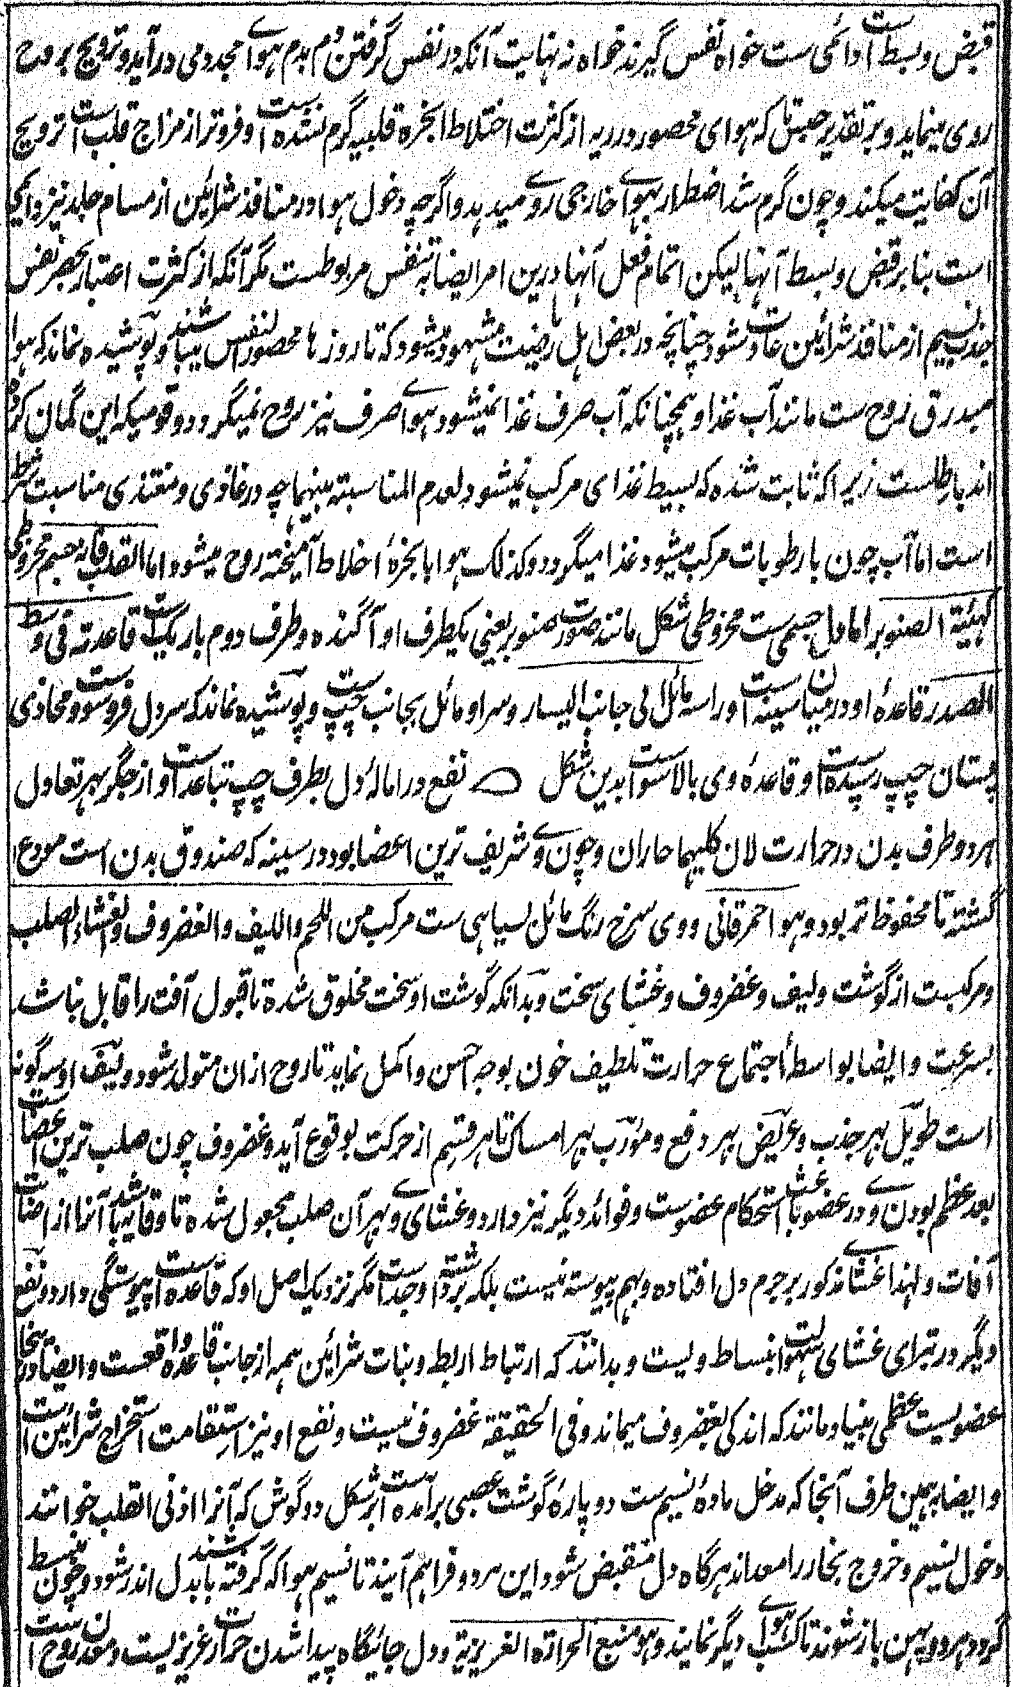 قبض و بسط او دائمی ست خواه نفس گیرند خواه نه نهایت آنکه در نفس گرفتن دم بدم هوای مجدد می درآید و ترویح بروح
روی مینماید و بر تقدیر حبس تا که هوای محصور در ریه از کثرت اختلاط ابخره قلبیه گرم نشده است و فروتر از مزاج قلب است ترویح
آن کفایت میکند و چون گرم شد اضطرار بهوای خارجی روی میدهد و اگرچه دخول هوا در منافذ شرائین از مسام جلد نیز دائمی
است بنا بر قبض و بسط آنها لیکن اتمام فعل آنها درین امر ایضا به تنفس مربوطست مگر آنکه از کثرت اعتبار بحصر نفس
جذب نسیم از منافذ شرائین عادت شود چنانچه در بعض اهل ریاضت مشهود میشود که تا روزها محصور النفس میباشند و پوشیده نماند که هوا
مبدرق روح ست مانند آب غذا و همچنانکه آب صرف غذا نمیشود هوای صرف نیز روح نمیگردد و قومیکه این گمان کرده
اند باطلست زیرا که ثابت شده که بسیط غذای مرکب نمیشود لعدم المناسبته بینهما چه در غاذی و مغتذی مناسبت شرط
است اما آب چون بارطوبات مرکب میشود غذا میگردد و کذلک هوا با بخرهٔ اخلاط آمیخته روح میشود اما القلب فانه جسم مخروطی
کهیئة الصنوبر اما دل جسمی ست مخروطی شکل مانند صورت صنوبر یعنی یکطرف او آگنده و طرف دوم باریک ست قاعدته فی وسط
الصدر قاعدهٔ او در میان سینه است و راسه مائل الی جانب الیسار و سر او مائل بجانب چپ ست و پوشیده نماند که سر دل فروست و محاذی
پستان چپ رسیده است و قاعدهٔ وی بالا است بدین شکل نفع در امالهٔ دل بطرف چپ تباعد او از جگر بهر تعادل
هر دو طرف بدن در حرارت لان کلیهما حاران و چون وی شریف ترین اعضا بود در سینه که صندوق بدن است مودع
گشته تا محفوظ تر بود و هو احمر قانی و وی سرخ رنگ مائل بسیاهی ست مرکب من اللحم و اللیف و الغضروف و الغشاء الصلب
و مرکبست از گوشت و لیف و غضروف و غشای سخت و بدانکه گوشت او سخت مخلوق شده تا قبول آفت را قابل نباشد
بسرعت و ایضا بواسطهٔ اجتماع حرارت تلطیف خون بوجه احسن و اکمل نماید تا روح ازان متولد شود و لیف او سه گونه
است طویل بهر جذب و عریض بهر دفع و مورب بهر امساک تا هر قسم از حرکت بوقوع آید و غضروف چون صلب ترین اعضا است
بعد عظم بودن وی در عضو باعث استحکام عضوست و فوائد دیگر نیز دارد و غشای وی بهر آن صلب مجعول شده تا وقایه باشد آنرا از اصابت
آفات و لهذا غشای مذکور بر جرم دل افتاده و بهم پیوسته نیست بلکه برداشته و جدا است مگر نزدیک اصل او که قاعده است پیوستگی دارد و نفع
دیگر در تبرای غشای سهولت انبساط ویست و بدانند که ارتباط اربط و بنات شرائین همه از جانب قاعده واقعست و ایضا درینجا
عضویست عظمی بنیاد مانند که اندکی بغضروف میماند و فی الحقیقة غضروف نیست و نفع او نیز استقامت استخراج شرائین است
و ایضا بهمین طرف آنجا که مدخل مادهٔ نسیم ست دو پارهٔ گوشت عصبی برآمده است بر شکل دو گوش که آنرا اذنی القلب خوانند
دخول نسیم و خروج بخار را معداند هرگاه دل منقبض شود این هر دو فراهم آیند تا نسیم هوا که گرفته باشند بدل اندر شود و چون منبسط
گردد هر دو پهن باز شوند تا کسب هوای دیگر نمایند و هو منبع الحرارة الغریزیة و دل جائیگاه پیدا شدن حرارت غریزیست و معدن روح است